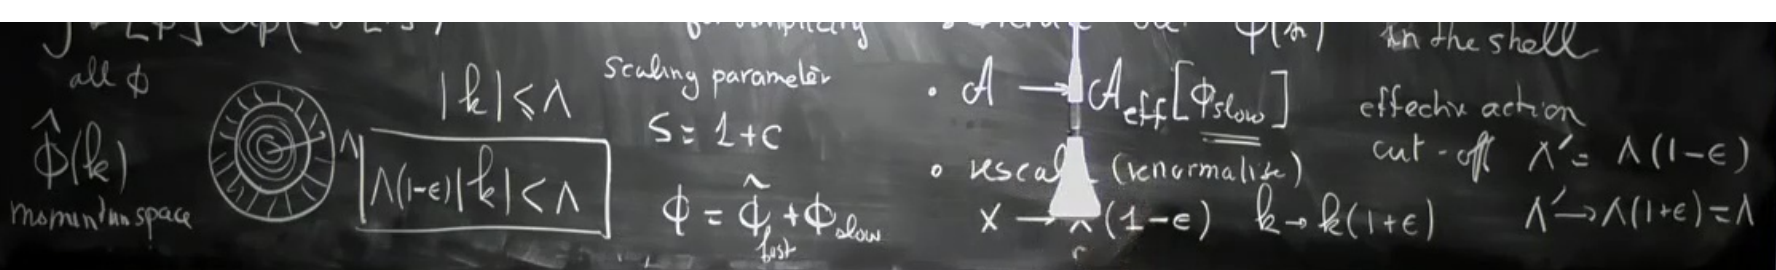 all ϕ
ϕ̂(k)
momentum space
Λ
|k| ⩽ Λ
Λ(1-ϵ)|k| < Λ
scaling parameter
S = 1+ϵ
ϕ = ϕ̃ + ϕ slow
fast
in the shell
• A → A eff [ϕ slow] effective action
cut-off Λ' = Λ(1-ϵ)
(renormalise)
X → (1-ϵ) k → k(1+ϵ) Λ' → Λ(1+ϵ) = Λ